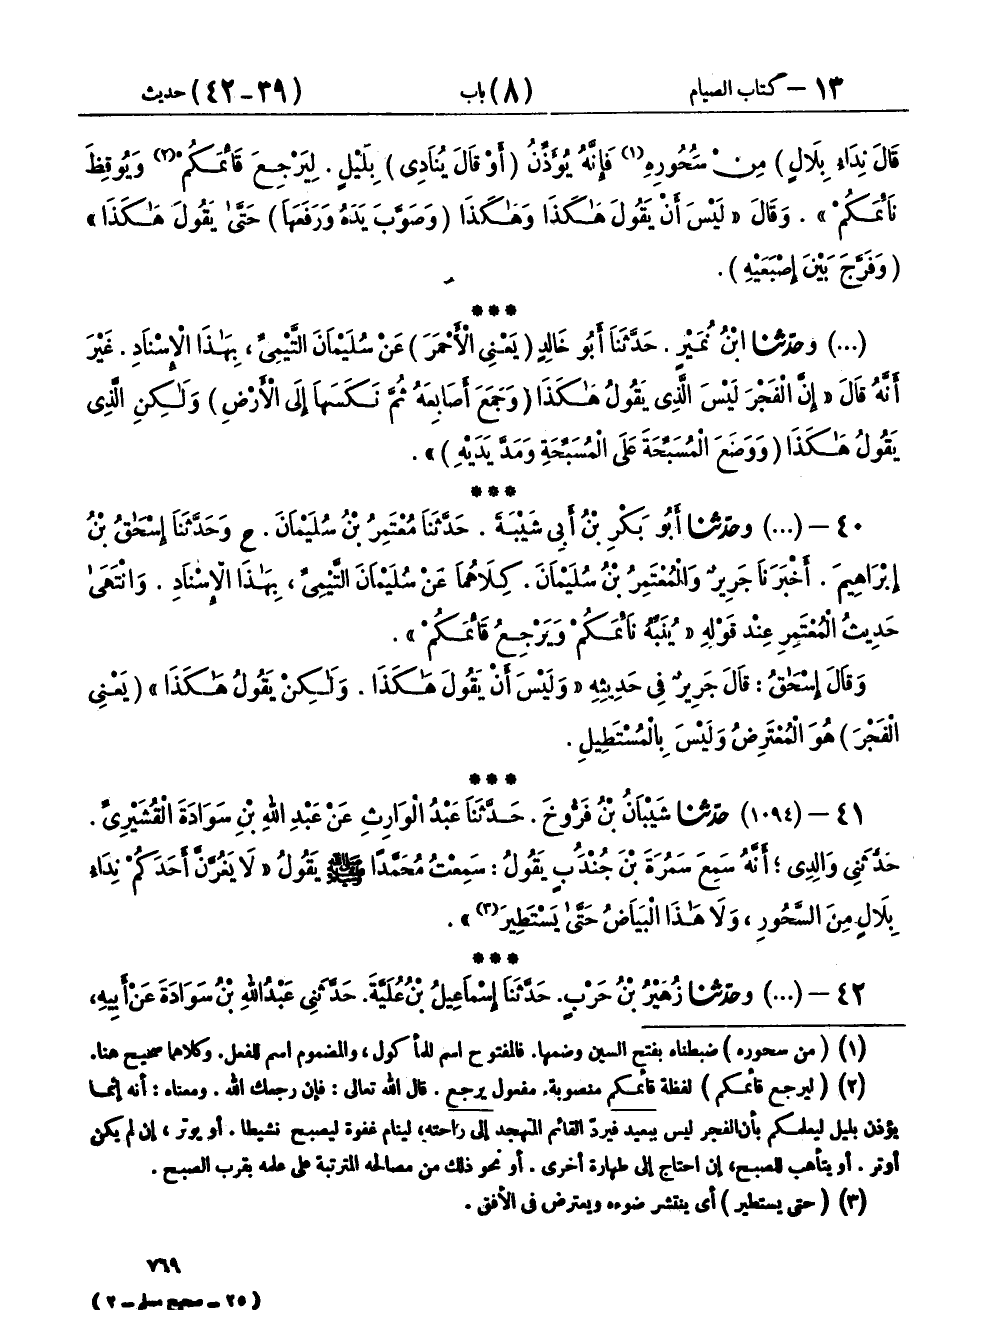 ١٣ – كتاب الصيام (٨) باب (٣٩-٤٢) حديث
قَالَ نِدَاءُ بِلَالٍ ) مِنْ سُحُورِهِ(١) فَإِنَّهُ يُؤَذِّنُ ( أَوْ قَالَ يُنَادِى ) بِلَيْلٍ . لِيَرْجِعَ قَائِمَكُمْ(٢) وَيُوقِظَ
نَائِمَكُمْ » . وَقَالَ « لَيْسَ أَنْ يَقُولَ هَٰكَذَا وَهَٰكَذَا ( وَصَوَّبَ يَدَهُ وَرَفَعَهَا ) حَتَّىٰ يَقُولَ هَٰكَذَا »
( وَفَرَّجَ بَيْنَ إِصْبَعَيْهِ ) .
***
(...) وحدّثنا ابْنُ نُمَيْرٍ . حَدَّثَنَا أَبُو خَالِدٍ ( يَعْنِي الْأَحْمَرَ ) عَنْ سُلَيْمَانَ التَّيْمِىِّ ، بِهَٰذَا الْإِسْنَادِ . غَيْرَ
أَنَّهُ قَالَ « إِنَّ الْفَجْرَ لَيْسَ الَّذِى يَقُولُ هَٰكَذَا ( وَجَمَعَ أَصَابِعَهُ ثُمَّ نَكَسَهَا إِلَى الْأَرْضِ ) وَلَٰكِنِ الَّذِى
يَقُولُ هَٰكَذَا ( وَوَضَعَ الْمُسَبِّحَةَ عَلَى الْمُسَبِّحَةِ وَمَدَّ يَدَيْهِ ) » .
***
٤٠ – (...) وحدّثنا أَبُو بَكْرِ بْنُ أَبِى شَيْبَةَ . حَدَّثَنَا مُعْتَمِرُ بْنُ سُلَيْمَانَ . ح وَحَدَّثَنَا إِسْحَٰقُ بْنُ
إِبْرَاهِيمَ . أَخْبَرَنَا جَرِيرٌ وَالْمُعْتَمِرُ بْنُ سُلَيْمَانَ . كِلَاهُمَا عَنْ سُلَيْمَانَ التَّيْمِىِّ ، بِهَٰذَا الْإِسْنَادِ . وَانْتَهَىٰ
حَدِيثُ الْمُعْتَمِرِ عِنْدَ قَوْلِهِ « يُنَبِّهُ نَائِمَكُمْ وَيَرْجِعُ قَائِمَكُمْ » .
وَقَالَ إِسْحَٰقُ : قَالَ جَرِيرٌ فِى حَدِيثِهِ « وَلَيْسَ أَنْ يَقُولَ هَٰكَذَا . وَلَٰكِنْ يَقُولُ هَٰكَذَا » ( يَعْنِى
الْفَجْرَ ) هُوَ الْمُعْتَرِضُ وَلَيْسَ بِالْمُسْتَطِيلِ .
***
٤١ – (١٠٩٤) حدّثنا شَيْبَانُ بْنُ فَرُّوخَ . حَدَّثَنَا عَبْدُ الْوَارِثِ عَنْ عَبْدِ اللهِ بْنِ سَوَادَةَ الْقُشَيْرِىِّ .
حَدَّثَنِى وَالِدِى ؛ أَنَّهُ سَمِعَ سَمُرَةَ بْنَ جُنْدُبٍ يَقُولُ : سَمِعْتُ مُحَمَّدًا ﷺ يَقُولُ « لَا يَغُرَّنَّ أَحَدَكُمْ نِدَاءُ
بِلَالٍ مِنَ السَّحُورِ ، وَلَا هَٰذَا الْبَيَاضُ حَتَّىٰ يَسْتَطِيرَ(٣) » .
***
٤٢ – (...) وحدّثنا زُهَيْرُ بْنُ حَرْبٍ . حَدَّثَنَا إِسْمَاعِيلُ بْنُ عُلَيَّةَ. حَدَّثَنِى عَبْدُ اللهِ بْنُ سَوَادَةَ عَنْ أَبِيهِ،
(١) ( من سحوره ) ضبطناه بفتح السين وضمها. فالمفتوح اسم للمأكول ، والمضموم اسم للفعل. وكلاهما صحيح هنا.
(٢) ( ليرجع قائمكم ) لفظة قائمكم منصوبة، مفعول يرجع . قال الله تعالى : فإن رجعك الله . ومعناه : أنه إنما
يؤذن بليل ليعلمكم بأن الفجر ليس ببعيد فيردّ القائم المتهجد إلى راحته، لينام غفوة ليصبح نشيطا . أو يوتر ، إن لم يكن
أوتر . أو يتأهب للصبح، إن احتاج إلى طهارة أخرى . أو نحو ذلك من مصالحه المترتبة على علمه بقرب الصبح .
(٣) ( حتى يستطير ) أى ينتشر ضوءه ويعترض فى الأفق .
٧٦٩
( ٢٥ – صحيح مسلم – ٢ )